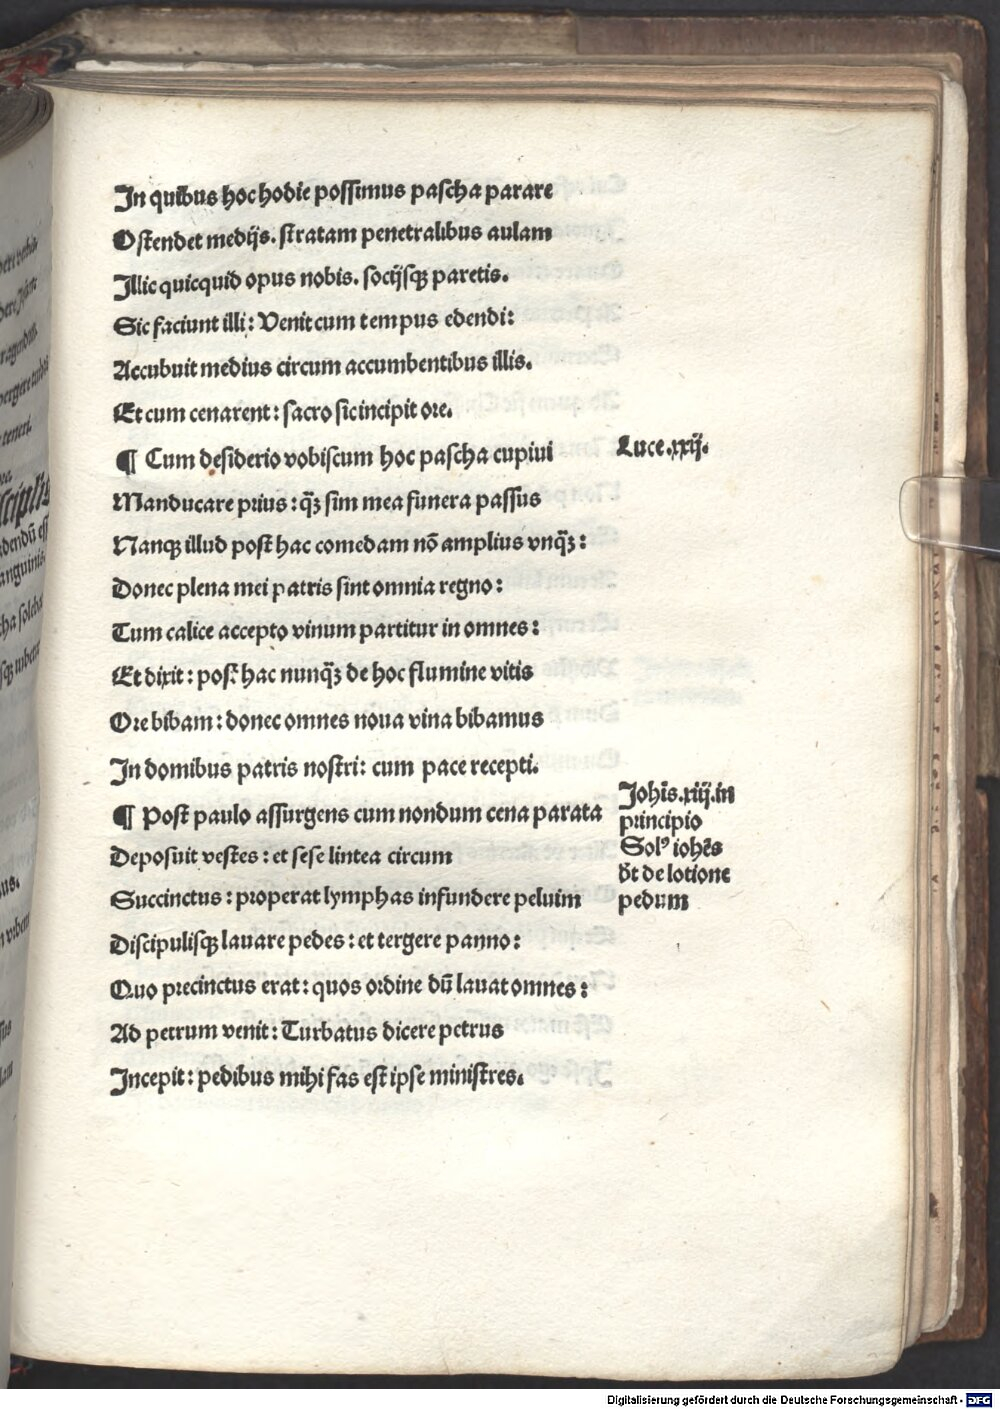 In quibus hoc hodie possimus pascha parare
Ostendet medijs. stratam penetralibus aulam
Illic quicquid opus nobis. socijsqꝫ paretis.
Sic faciunt illi: Venit cum tempus edendi:
Accubuit medius circum accumbentibus illis.
Et cum cenarent: sacro sic incipit ore.
¶ Cum desiderio vobiscum hoc pascha cupiui
Luce.xxij.
Manducare prius: q̃ꝫ sim mea funera passus
Nanqꝫ illud post hac comedam nō amplius vnq̃ꝫ:
Donec plena mei patris sint omnia regno:
Tum calice accepto vinum partitur in omnes:
Et dixit: post hac nunq̃ꝫ de hoc flumine vitis
Ore bibam: donec omnes noua vina bibamus
In domibus patris nostri: cum pace recepti.
¶ Post paulo assurgens cum nondum cena parata
Johīs.xiij.in
principio
Solꝰ iohēs
d̄t de lotione
pedum
Deposuit vestes: et sese lintea circum
Succinctus: properat lymphas infundere peluim
Discipulisqꝫ lauare pedes: et tergere panno:
Quo precinctus erat: quos ordine dū lauat omnes:
Ad petrum venit: Turbatus dicere petrus
Incepit: pedibus mihi fas est ipse ministres.
Digitalisierung gefördert durch die Deutsche Forschungsgemeinschaft - DFG